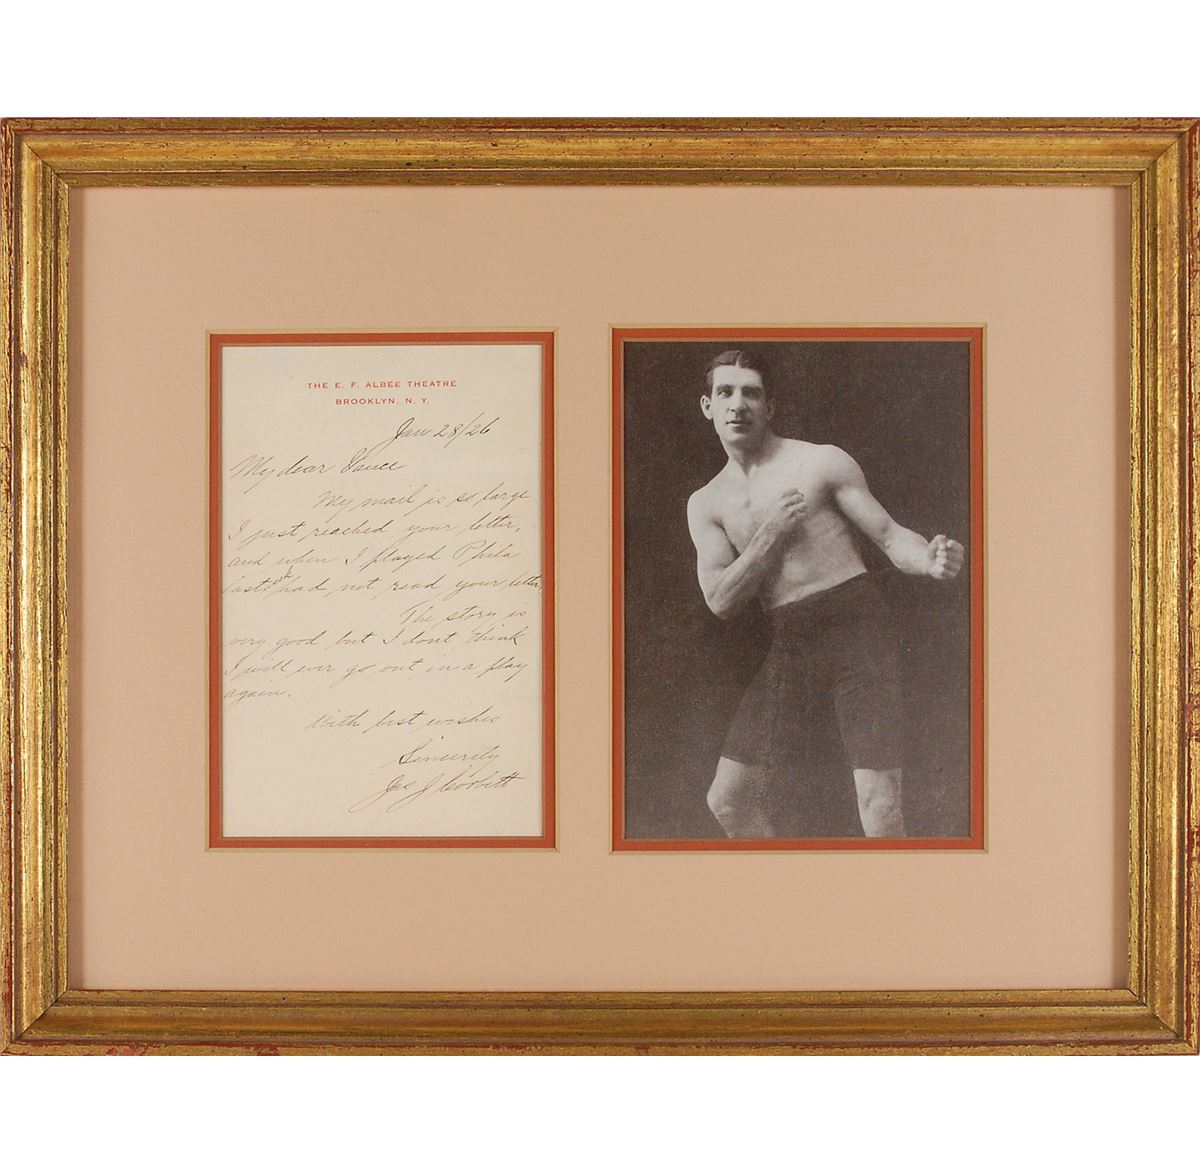 THE E. F. ALBEE THEATRE
BROOKLYN, N. Y.
Jan 28/26
My dear Vance
My mail is so large
I just reached your letter,
and when I played Phila
last wk had not read your letter.
The story is
very good but I dont think
I will ever go out in a play
again.
With best wishes
Sincerely
Jas J Corbett